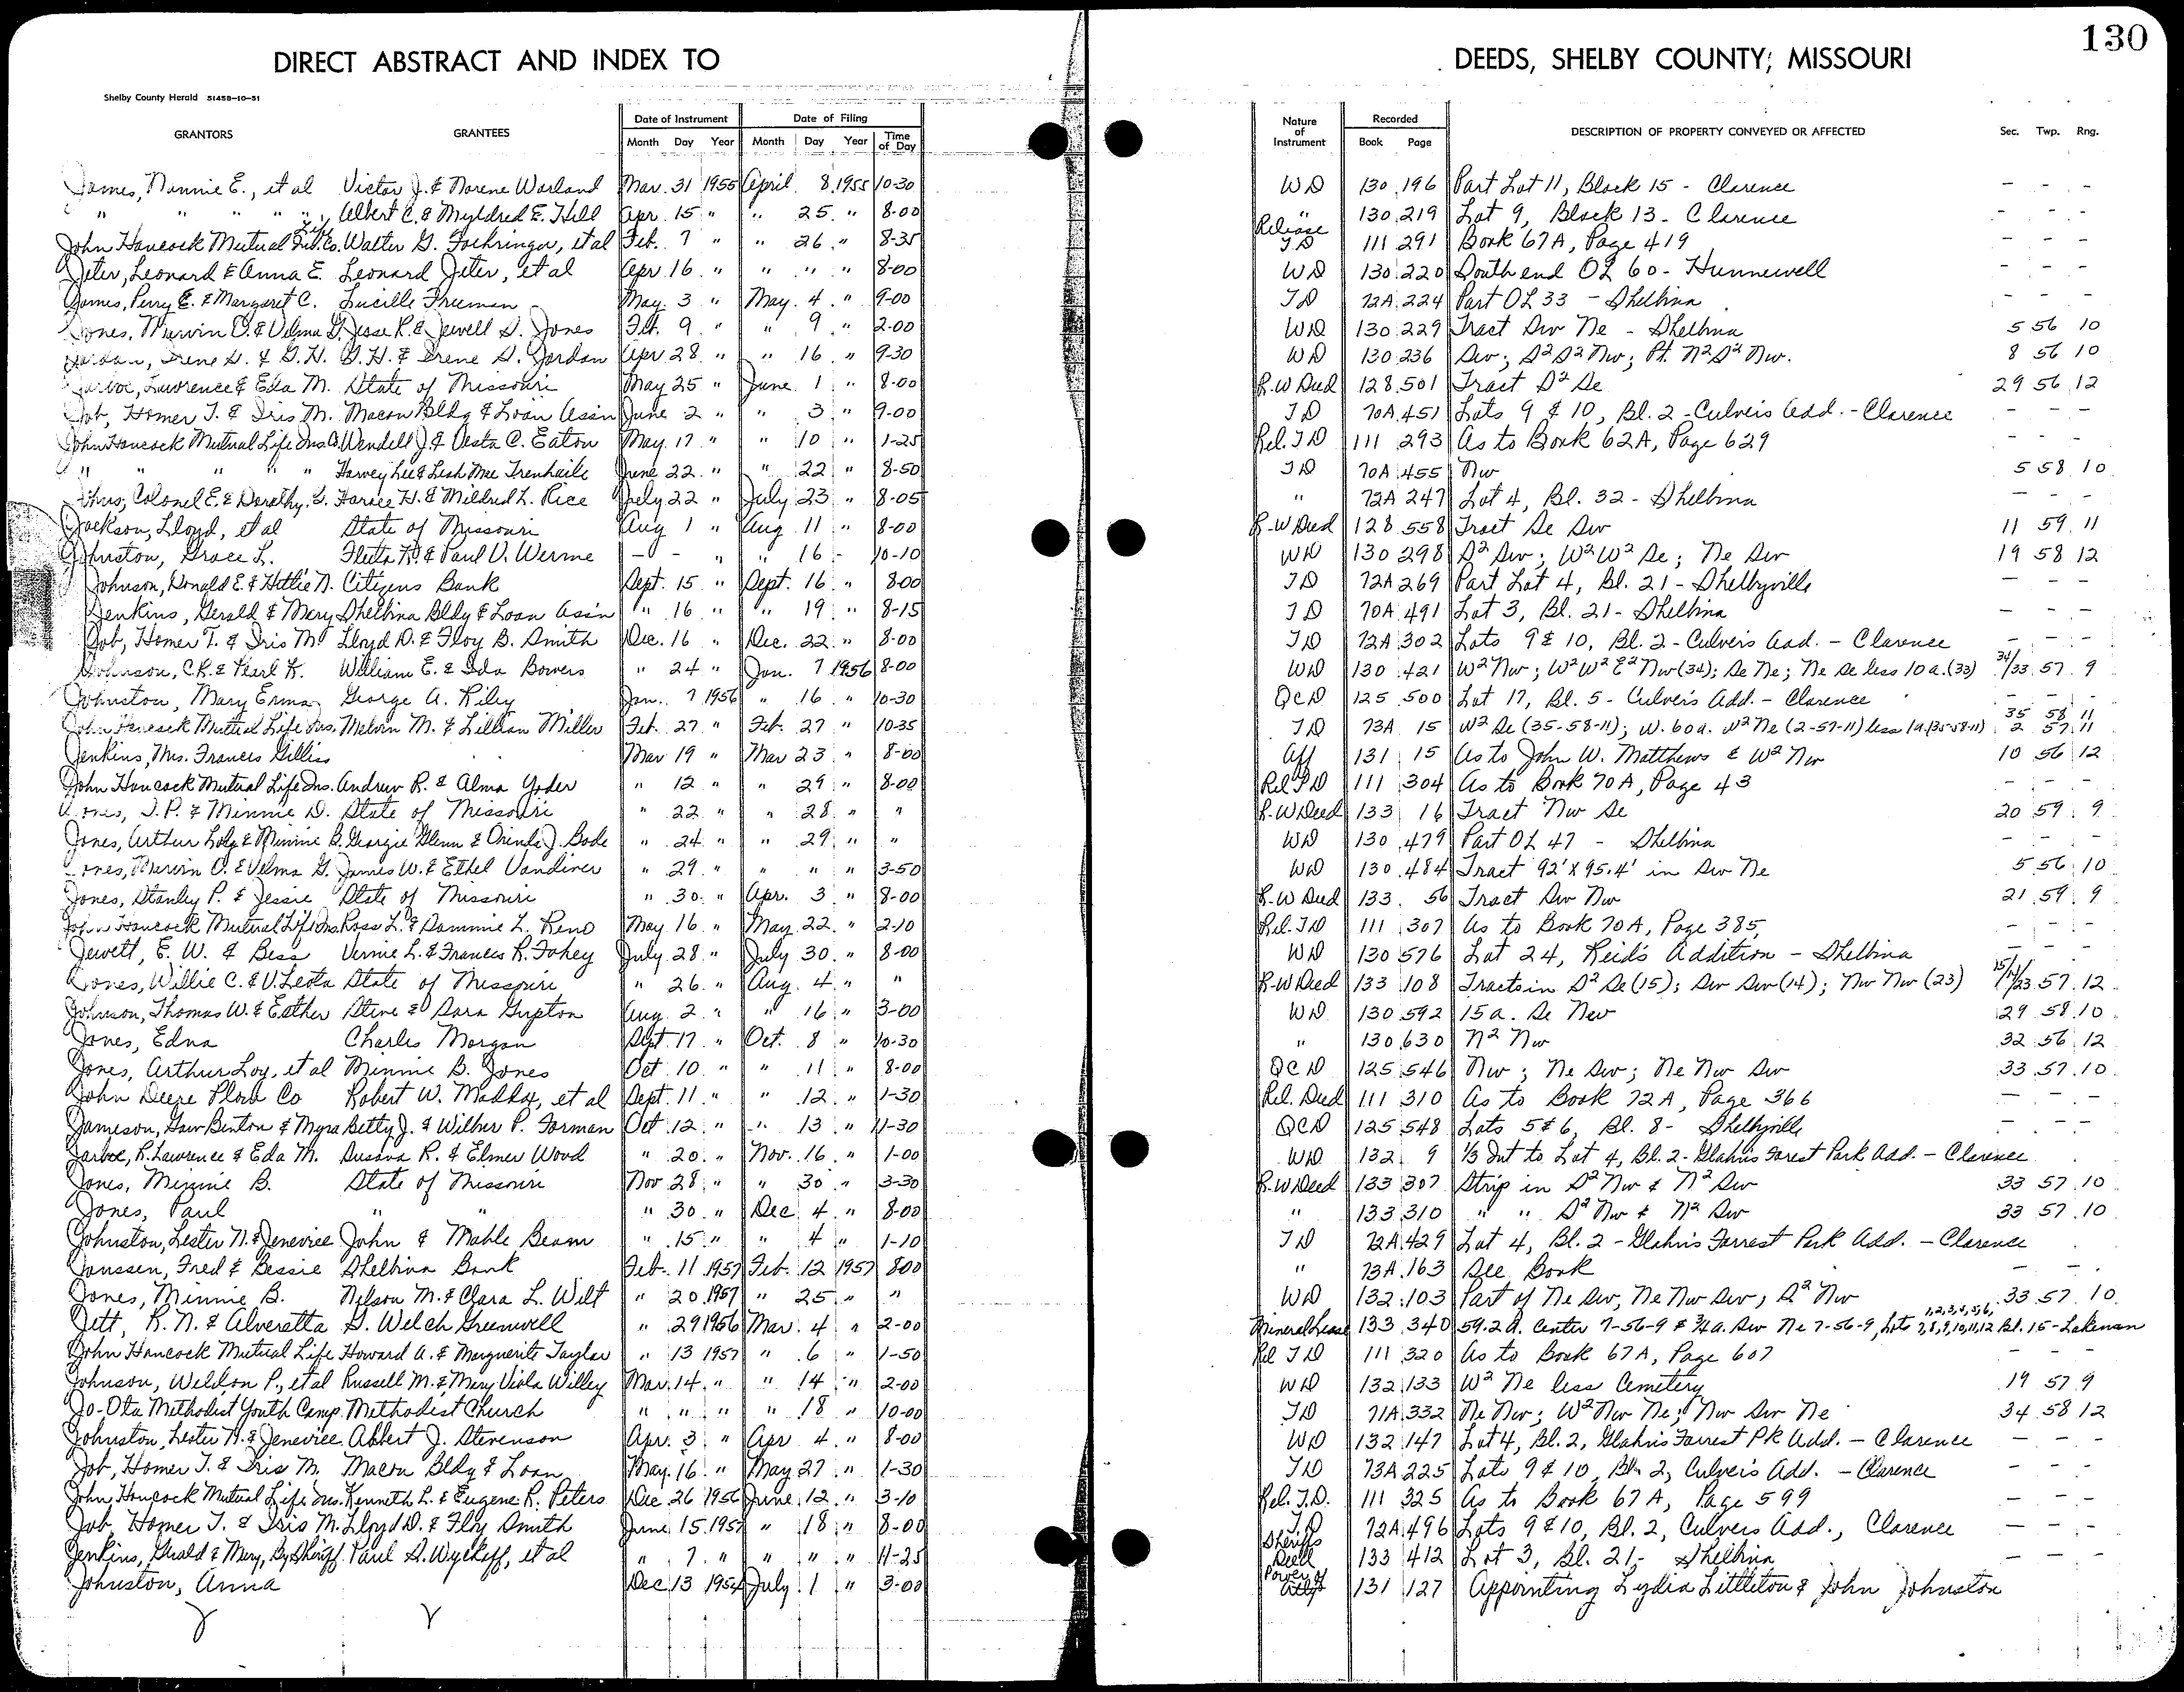 130
DIRECT ABSTRACT AND INDEX TO DEEDS, SHELBY COUNTY; MISSOURI
Shelby County Herald 51458-10-51
GRANTORS GRANTEES Date of Instrument Month Day Year Date of Filing Month Day Year Time of Day Nature of Instrument Recorded Book Page DESCRIPTION OF PROPERTY CONVEYED OR AFFECTED Sec. Twp. Rng.
James, Nannie E., et al Victor J. & Norene Warland Mar. 31 1955 April 8 1955 10-30 WD 130 196 Part Lot 11, Block 15 - Clarence - - -
" " " " " Albert C. & Myldred E. Hill Apr. 15 " " 25 " 8-00 " 130 219 Lot 9, Block 13 - Clarence - - -
John Hancock Mutual Life Ins. Co. Walter G. Foehringer, et al Feb. 7 " " 26 " 8-35 Release TD 111 291 Book 67A, Page 419 - - -
Jeter, Leonard & Anna E. Leonard Jeter, et al Apr. 16 " " " " 8-00 WD 130 220 South end OL 60 - Hunnewell - - -
James, Perry E. & Margaret C. Lucille Freeman May 3 " May 4 " 9-00 TD 72A 224 Part OL 33 - Shelbina - - -
Jones, Marvin O. & Velma G. Jesse R. & Jewell S. Jones Feb. 9 " " 9 " 2-00 WD 130 229 Tract Sw Ne - Shelbina 5 56 10
Jordan, Irene S. & G.H. G.H. & Irene S. Jordan Apr 28 " " 16 " 9-30 WD 130 236 Sw; S² S² Nw; Pt. N² S² Nw. 8 56 10
Jarboe, Lawrence & Eda M. State of Missouri May 25 " June 1 " 8-00 R.W Deed 128 501 Tract S² Se 29 56 12
Job, Homer T. & Iris M. Macon Bldg & Loan Ass'n June 2 " " 3 " 9-00 TD 70A 451 Lots 9 & 10, Bl. 2 - Culver's Add. - Clarence - - -
John Hancock Mutual Life Ins Co. Wendell J. & Oesta C. Eaton May 17 " " 10 " 1-25 Rel. TD 111 293 As to Book 62A, Page 629 - - -
" " " " " Harvey Lee & Leah Mae Trenhaile June 22 " " 22 " 8-50 TD 70A 455 Nw 5 58 10
Johns, Colonel E. & Dorothy G. Horace H. & Mildred L. Rice July 22 " July 23 " 8-05 " 72A 247 Lot 4, Bl. 32 - Shelbina - - -
Jackson, Lloyd, et al State of Missouri Aug 1 " Aug 11 " 8-00 R-W Deed 128 558 Tract Se Sw 11 59 11
Johnston, Grace L. Fleeta R. & Paul V. Werme - - " " 16 - 10-10 WD 130 298 S² Sw; W² W² Se; Ne Sw 19 58 12
Johnson, Donald E. & Hettie N. Citizens Bank Sept. 15 " Sept. 16 " 8-00 TD 72A 269 Part Lot 4, Bl. 21 - Shelbyville - - -
Jenkins, Gerald & Mary Shelbina Bldg & Loan Ass'n " 16 " " 19 " 8-15 TD 70A 491 Lot 3, Bl. 21 - Shelbina - - -
Job, Homer T. & Iris M. Lloyd D. & Floy B. Smith Dec. 16 " Dec. 22 " 8-00 TD 72A 302 Lots 9 & 10, Bl. 2 - Culver's Add. - Clarence - - -
Johnson, C.R. & Pearl K. William E. & Ida Bowers " 24 " Jan. 7 1956 8-00 WD 130 421 W² Nw; W² W² E² Nw (34); Se Ne; Ne Se less 10 a. (33) 34/33 57 9
Johnston, Mary Erma George A. Riley Jan. 7 1956 " 16 " 10-30 QCD 125 500 Lot 17, Bl. 5 - Culver's Add. - Clarence - - -
John Hancock Mutual Life Ins. Melvin M. & Lillian Miller Feb. 27 " Feb. 27 " 10-35 TD 73A 15 W² Se (35-58-11); W. 60a. W² Ne (2-57-11) less 1a. (35-58-11) 35 58 11 2 57 11
Jenkins, Mrs. Frances Gilliss Mar 19 " Mar 23 " 8-00 Aff 131 15 As to John W. Matthews & W² Nw 10 56 12
John Hancock Mutual Life Ins. Andrew R. & Alma Yoder " 12 " " 29 " 8-00 Rel TD 111 304 As to Book 70A, Page 43 - - -
Jones, T.P. & Minnie D. State of Missouri " 22 " " 28 " " R-W Deed 133 16 Tract Nw Se 20 59 9
Jones, Arthur Loy & Minnie B. Georgie Glenn & Orinda J. Bode " 24 " " 29 " " WD 130 479 Part OL 47 - Shelbina - - -
Jones, Marvin O. & Velma G. James W. & Ethel Vandiver " 29 " " " " 3-50 WD 130 484 Tract 92' X 95.4' in Sw Ne 5 56 10
Jones, Stanley P. & Jessie State of Missouri " 30 " Apr. 3 " 8-00 R-W Deed 133 56 Tract Sw Nw 21 59 9
John Hancock Mutual Life Ins Ross L. & Sammie L. Reno May 16 " May 22 " 2-10 Rel. TD 111 307 As to Book 70A, Page 385 - - -
Jewett, E. W. & Bess Vernie L. & Frances R. Fohey July 28 " July 30 " 8-00 WD 130 576 Lot 24, Reid's Addition - Shelbina - - -
Jones, Willie C. & V. Leota State of Missouri " 26 " Aug. 4 " " R-W Deed 133 108 Tracts in S² Se (15); Sw Sw (14); Nw Nw (23) 15/14/23 57 12
Johnson, Thomas W. & Esther Steve & Sara Gupton Aug. 2 " " 16 " 3-00 WD 130 592 15 a. Se New 29 58 10
Jones, Edna Charles Morgan Sept 17 " Oct. 8 " 10-30 " 130 630 N² Nw 32 56 12
Jones, Arthur Loy, et al Minnie B. Jones Oct 10 " " 11 " 8-00 QCD 125 546 Nw; Ne Sw; Ne Nw Sw 33 57 10
John Deere Plow Co Robert W. Maddox, et al Sept. 11 " " 12 " 1-30 Rel. Deed 111 310 As to Book 72A, Page 366 - - -
Jameson, Gaw Benton & Myra Betty J. & Wilber P. Forman Oct 12 " " 13 " 11-30 QCD 125 548 Lots 5 & 6, Bl. 8 - Shelbyville - - -
Jarboe, R. Lawrence & Eda M. Susana R. & Elmer Wood " 20 " Nov. 16 " 1-00 WD 132 9 1/3 Int to Lot 4, Bl. 2 - Glahn's Forest Park Add. - Clarence
Jones, Minnie B. State of Missouri Nov 28 " " 30 " 3-30 R-W Deed 133 307 Strip in S² Nw & N² Sw 33 57 10
Jones, Paul " " " 30 " Dec 4 " 8-00 " 133 310 " " S² Nw & N² Sw 33 57 10
Johnston, Lester N. & Jenevice John & Mable Beam " 15 " " 4 " 1-10 TD 72A 429 Lot 4, Bl. 2 - Glahn's Forrest Park Add. - Clarence
Janssen, Fred & Bessie Shelbina Bank Feb. 11 1957 Feb. 12 1957 8-00 " 73A 163 See Book - -
Jones, Minnie B. Nelson M. & Clara L. Wilt " 20 1957 " 25 " " WD 132 103 Part of Ne Sw, Ne Nw Sw; S² Nw 33 57 10
Jett, R. N. & Alveratta G. Welch Greenwell " 29 1956 Mar. 4 " 2-00 Mineral Lease 133 340 59.2 A. Center 7-56-9 & 3/4 a. Sw Ne 7-56-9, Lots 1,2,3,4,5,6, 7,8,9,10,11,12 Bl. 15 - Lakenan
John Hancock Mutual Life Howard A. & Marguerite Taylor " 13 1957 " 6 " 1-50 Rel TD 111 320 As to Book 67A, Page 607 - - -
Johnson, Weldon P., et al Russell M. & Mary Viola Willey Mar. 14 " " 14 " 2-00 WD 132 133 W² Ne less Cemetery 19 57 9
Jo-Ota Methodist Youth Camp Methodist Church " " " " 18 " 10-00 TD 71A 332 Ne Nw; W² Nw Ne; Nw Sw Ne 34 58 12
Johnston, Lester N. & Jenevice Albert J. Stevenson Apr. 3 " Apr 4 " 8-00 WD 132 147 Lot 4, Bl. 2, Glahn's Forrest Pk Add. - Clarence - - -
Job, Homer T. & Iris M. Macon Bldg & Loan May 16 " May 27 " 1-30 TD 73A 225 Lots 9 & 10, Bl. 2, Culver's Add. - Clarence - - -
John Hancock Mutual Life Ins. Kenneth L. & Eugene R. Peters Dec 26 1956 June 12 " 3-10 Rel. T.D. 111 325 As to Book 67A, Page 599 - - -
Job, Homer T. & Iris M. Lloyd D. & Floy Smith June 15 1957 " 18 " 8-00 T.D 72A 496 Lots 9 & 10, Bl. 2, Culvers Add., Clarence - - -
Jenkins, Gerald & Mary, By Sheriff Paul S. Wyckoff, et al " 7 " " " " 11-25 Sheriffs Deed 133 412 Lot 3, Bl. 21, - Shelbina - - -
Johnston, Anna Dec 13 1954 July 1 " 3-00 Power of Att'y 131 127 Appointing Lydia Littleton & John Johnston